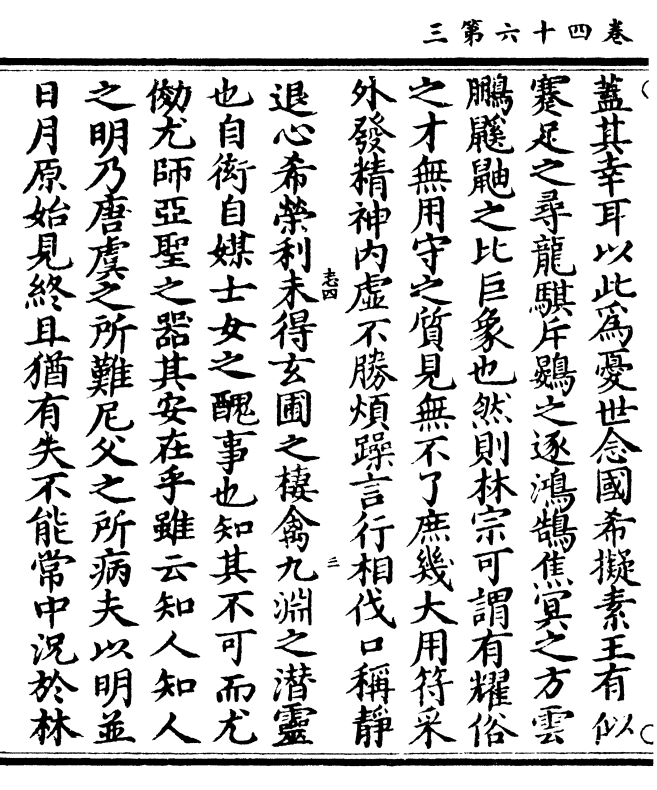 卷四十六第三
蓋其幸耳以此為憂世念國希擬素王有似
蹇足之尋龍騏斥鷃之逐鴻鵠焦冥之方雲
鵬鼷鼬之比巨象也然則林宗可謂有耀俗
之才無用守之質見無不了庶幾大用符采
外發精神內虛不勝煩躁言行相伐口稱靜
退心希榮利未得玄圃之棲禽九淵之潛靈
也自衒自媒士女之醜事也知其不可而尤
傚尤師亞聖之器其安在乎雖云知人知人
之明乃唐虞之所難尼父之所病夫以明並
日月原始見終且猶有失不能常中況於林
志四
三